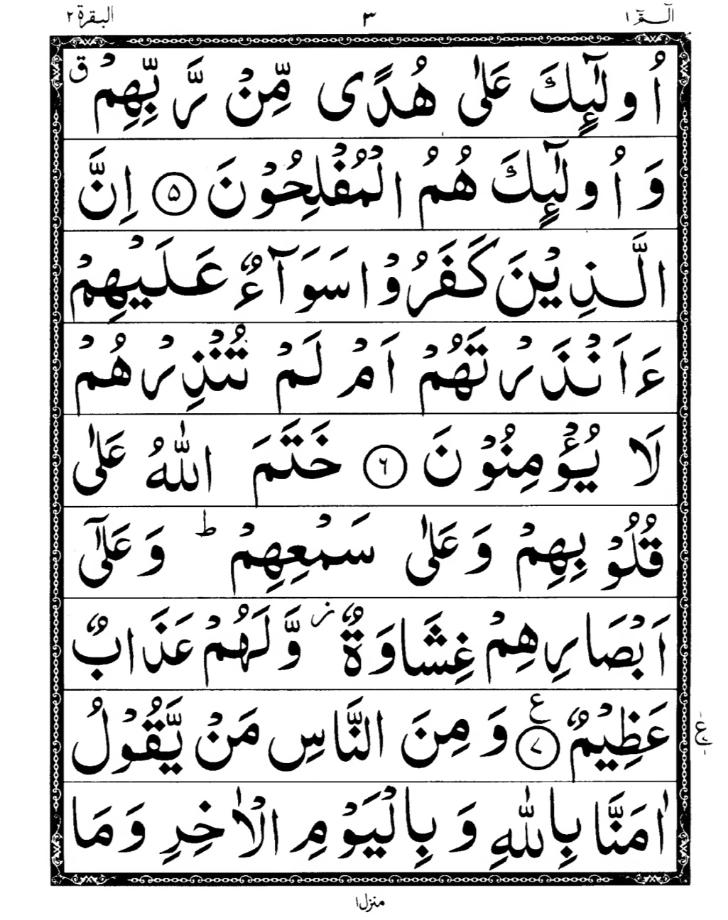 الٓـمّٓ ۱ ۳ البقرة ۲
اُولٰٓئِكَ عَلٰى هُدًى مِّنْ رَّبِّهِمْ ۗق
وَ اُولٰٓئِكَ هُمُ الْمُفْلِحُوْنَ ﴿۵﴾ اِنَّ
الَّذِيْنَ كَفَرُوْا سَوَآءٌ عَلَيْهِمْ
ءَاَنْذَرْتَهُمْ اَمْ لَمْ تُنْذِرْهُمْ
لَا يُؤْمِنُوْنَ ﴿۶﴾ خَتَمَ اللّٰهُ عَلٰى
قُلُوْبِهِمْ وَعَلٰى سَمْعِهِمْ ؕ وَعَلٰٓى
اَبْصَارِهِمْ غِشَاوَةٌ ؗ وَّلَهُمْ عَذَابٌ
عَظِيْمٌ ﴿۷﴾ ع وَمِنَ النَّاسِ مَنْ يَّقُوْلُ
اٰمَنَّا بِاللّٰهِ وَبِالْيَوْمِ الْاٰخِرِ وَمَا
منزل ۱